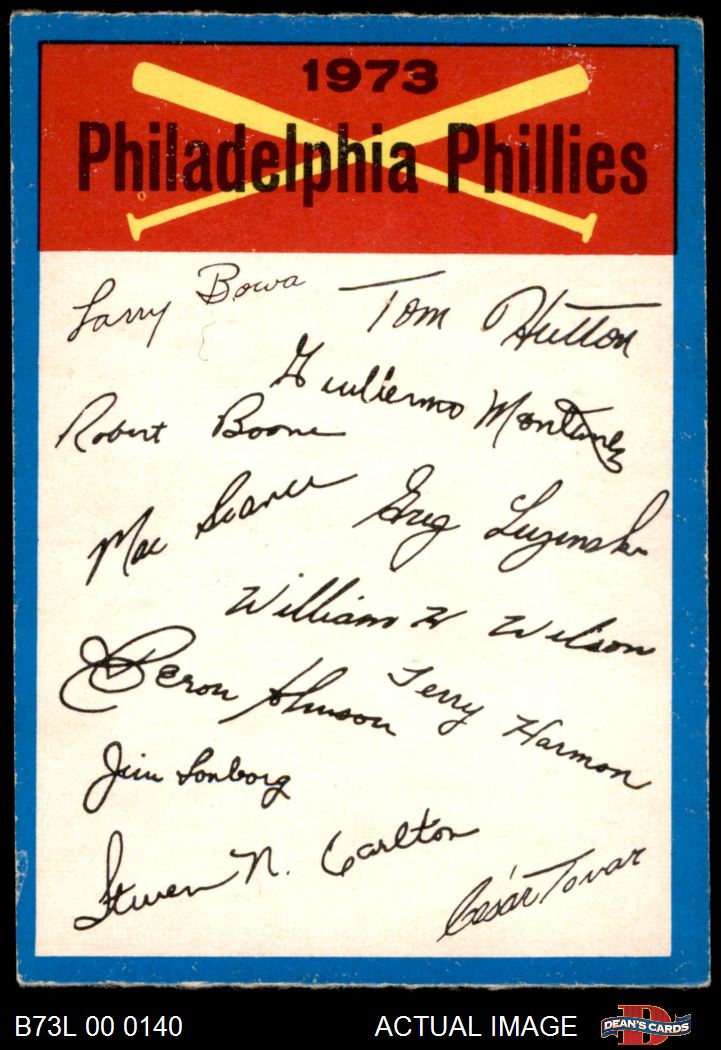 1973
Philadelphia Phillies
Larry Bowa
Tom Hutton
Guillermo Montanez
Robert Boone
Mac Scarce
Greg Luzinski
William H Wilson
Deron Johnson
Terry Harmon
Jim Lonborg
Steven N. Carlton
César Tovar
B73L 00 0140
ACTUAL IMAGE
D
DEAN'S CARDS